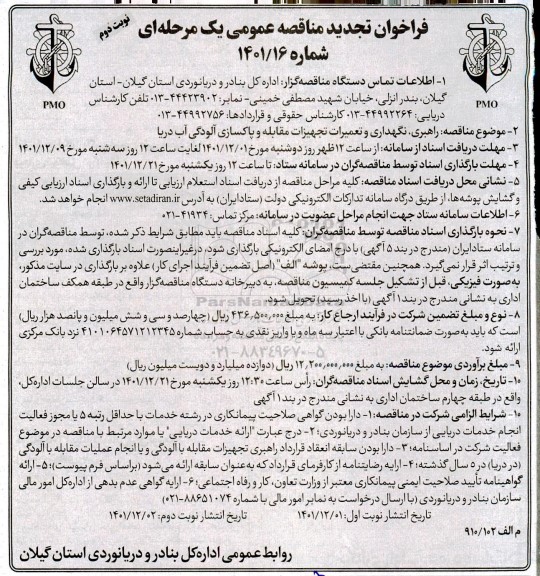 فراخوان تجدید مناقصه عمومی یک مرحله‌ای
نوبت دوم
شماره ۱۴۰۱/۱۶
PMO
PMO
۱- اطلاعات تماس دستگاه مناقصه‌گزار: اداره کل بنادر و دریانوردی استان گیلان- استان
گیلان، بندر انزلی، خیابان شهید مصطفی خمینی- نمابر: ۴۴۴۲۳۹۰۲-۰۱۳ تلفن کارشناس
دریایی: ۴۴۹۹۲۲۶۴-۰۱۳ کارشناس حقوقی و قراردادها: ۴۴۹۹۲۷۵۶-۰۱۳
۲- موضوع مناقصه: راهبری، نگهداری و تعمیرات تجهیزات مقابله و پاکسازی آلودگی آب دریا
۳- مهلت دریافت اسناد از سامانه: از ساعت ۱۲ ظهر روز دوشنبه مورخ ۱۴۰۱/۱۲/۰۱ لغایت ساعت ۱۲ روز سه‌شنبه مورخ ۱۴۰۱/۱۲/۰۹
۴- مهلت بارگذاری اسناد توسط مناقصه‌گران در سامانه ستاد: تا ساعت ۱۲ روز یکشنبه مورخ ۱۴۰۱/۱۲/۲۱
۵- نشانی محل دریافت اسناد مناقصه: کلیه مراحل مناقصه از دریافت اسناد استعلام ارزیابی تا ارائه و بارگذاری اسناد ارزیابی کیفی
و گشایش پوشه‌ها، از طریق درگاه سامانه تدارکات الکترونیکی دولت (ستادایران) به آدرس www.setadiran.ir انجام خواهد شد.
۶- اطلاعات سامانه ستاد جهت انجام مراحل عضویت در سامانه: مرکز تماس: ۴۱۹۳۴-۰۲۱
۷- نحوه بارگذاری اسناد مناقصه توسط مناقصه‌گران: کلیه اسناد مناقصه باید مطابق شرایط ذکر شده، توسط مناقصه‌گران در
سامانه ستادایران (مندرج در بند ۵ آگهی) با درج امضای الکترونیکی بارگذاری شود، درغیراینصورت اسناد بارگذاری شده، مورد بررسی
و ترتیب اثر قرار نمی‌گیرد. همچنین مقتضی‌ست، پوشه "الف" (اصل تضمین فرآیند اجرای کار) علاوه بر بارگذاری در سایت مذکور،
به‌صورت فیزیکی، قبل از تشکیل جلسه کمیسیون مناقصه، به دبیرخانه دستگاه مناقصه‌گزار واقع در طبقه همکف ساختمان
اداری به نشانی مندرج در بند ۱ آگهی (با اخذ رسید) تحویل شود.
۸- نوع و مبلغ تضمین شرکت در فرآیند ارجاع کار: به مبلغ ۴۳۶,۵۰۰,۰۰۰ ریال (چهارصد و سی و شش میلیون و پانصد هزار ریال)
است که باید به‌صورت ضمانتنامه بانکی با اعتبار سه ماه و یا واریز نقدی به حساب شماره ۴۱۰۱۰۶۴۵۷۱۲۱۲۳۴۵ نزد بانک مرکزی
ارائه شود.
۹- مبلغ برآوردی موضوع مناقصه: به مبلغ ۱۲,۲۰۰,۰۰۰,۰۰۰ ریال (دوازده میلیارد و دویست میلیون ریال)
۱۰- تاریخ، زمان و محل گشایش اسناد مناقصه‌گران: رأس ساعت ۱۲:۳۰ روز یکشنبه مورخ ۱۴۰۱/۱۲/۲۱ در سالن جلسات اداره‌کل،
واقع در طبقه چهارم ساختمان اداری به نشانی مندرج در بند ۱ آگهی
۱۰- شرایط الزامی شرکت در مناقصه: ۱- دارا بودن گواهی صلاحیت پیمانکاری در رشته خدمات با حداقل رتبه ۵ یا مجوز فعالیت
انجام خدمات دریایی از سازمان بنادر و دریانوردی؛ ۲- درج عبارت "ارائه خدمات دریایی" یا موارد مرتبط با مناقصه در موضوع
فعالیت شرکت در اساسنامه؛ ۳- دارا بودن سابقه انعقاد قرارداد راهبری تجهیزات مقابله با آلودگی و یا انجام عملیات مقابله با آلودگی
(در دریا) در ۵ سال گذشته؛ ۴- ارایه رضایتنامه از کارفرمای قرارداد که به‌عنوان سابقه ارائه می‌شود (براساس فرم پیوست)؛ ۵- ارائه
گواهینامه تأیید صلاحیت ایمنی پیمانکاری معتبر از وزارت تعاون، کار و رفاه اجتماعی؛ ۶- ارایه گواهی عدم بدهی از اداره‌کل امور مالی
سازمان بنادر و دریانوردی (با ارسال درخواست به نمابر امور مالی با شماره ۸۸۶۵۱۰۷۴-۰۲۱)
تاریخ انتشار نوبت اول: ۱۴۰۱/۱۲/۰۱ تاریخ انتشار نوبت دوم: ۱۴۰۱/۱۲/۰۲
م الف ۹۱۰/۱۰۲
روابط عمومی اداره‌کل بنادر و دریانوردی استان گیلان
ParsNamadData
۰۲۱-۸۸۳۴۹۶۷۰-۵